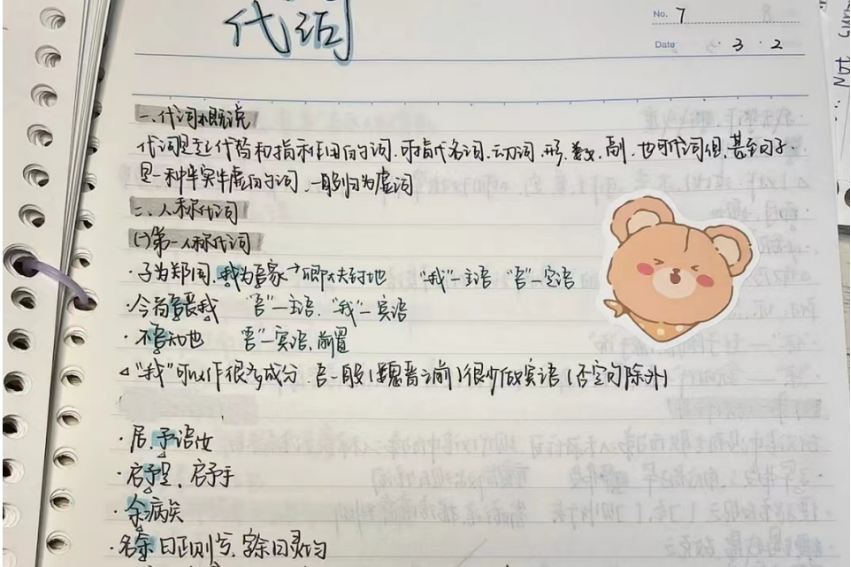 代词
No. 7
Date · 3 · 2
一、代词概说
代词是起代替和指示作用的词。可指代名词、动词、形、数、副,也可代词组,甚至句子
是一种半实半虚的词,一般归为虚词
二、人称代词
(一)第一人称代词
·子为郑国,我为吾家 "我"—主语 "吾"—定语
·今者吾丧我 "吾"—主语,"我"—宾语
·不吾知也 "吾"—宾语,前置
"我"可以作很多成分,吾一般(魏晋之前)很少做宾语(否定句除外)
·居,予语女
·启予足,启予手
·余病矣
·名余曰正则兮,字余曰灵均